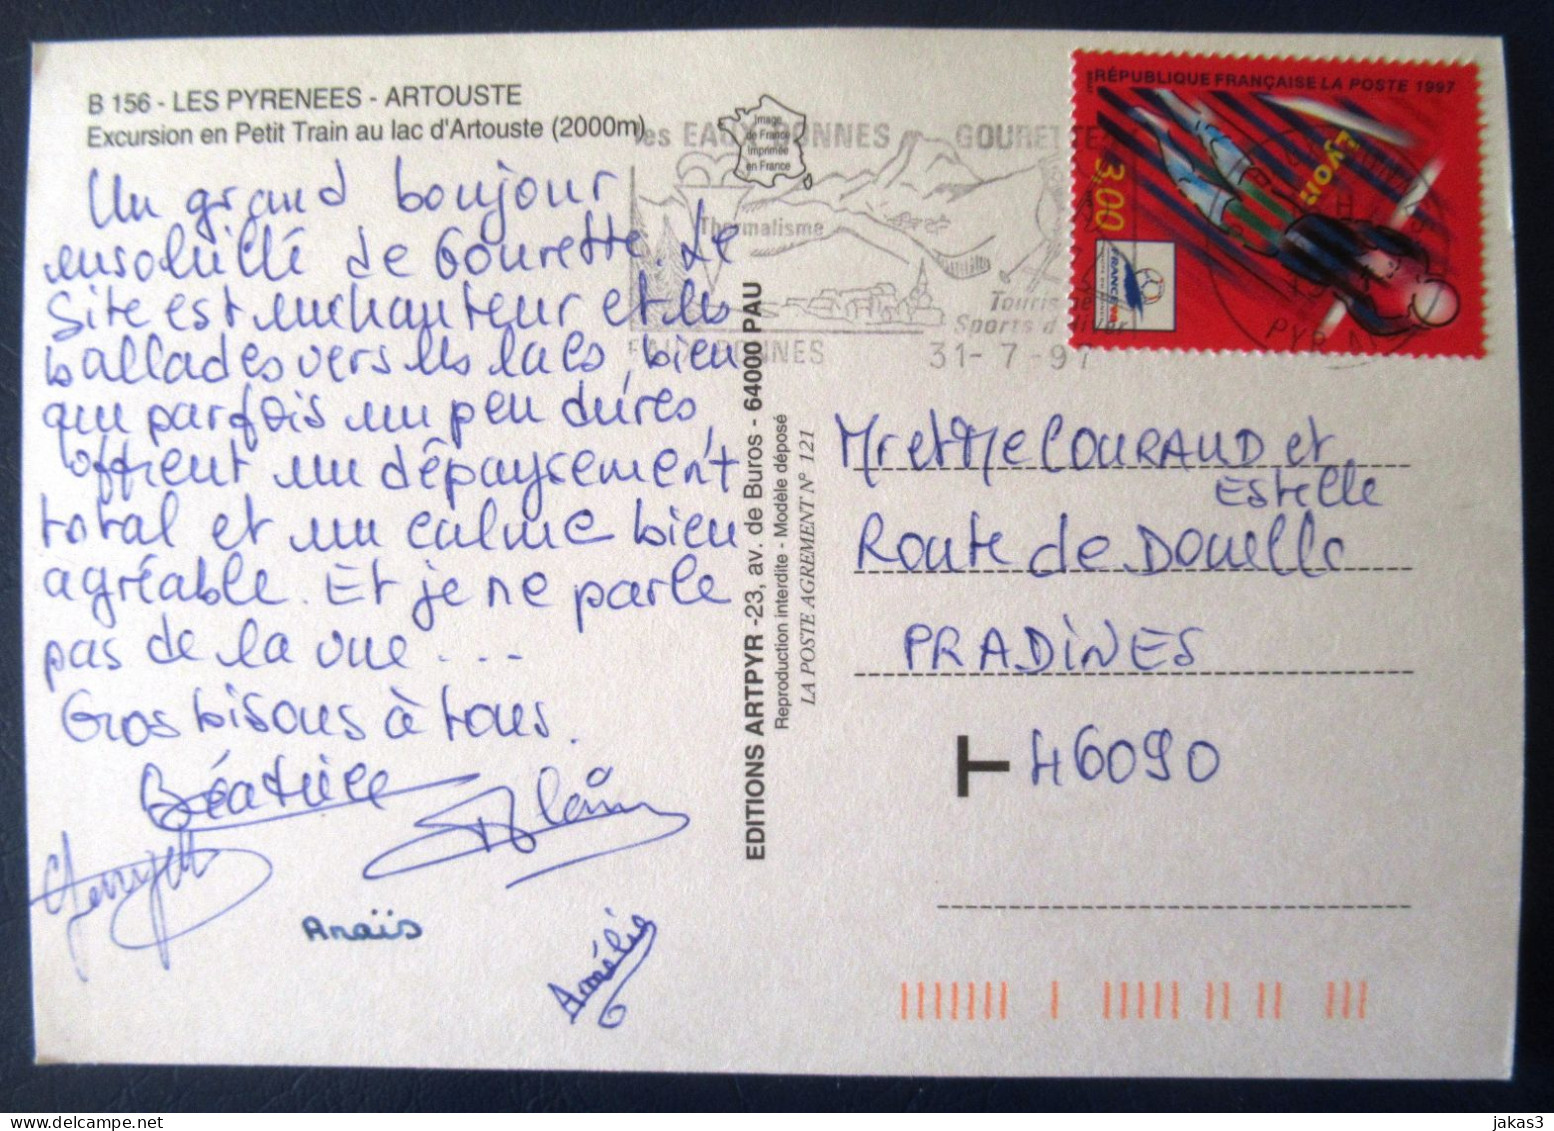 B 156 - LES PYRENEES - ARTOUSTE
Excursion en Petit Train au lac d'Artouste (2000m)
Un grand boujour
ensoleillé de Gourette. Le
Site est enchanteur et les
ballades vers les lacs, bien
que parfois un peu dures,
offrent un dépaysement
total et un calme bien
agréable. Et je ne parle
pas de la vue ...
Gros bisous à tous.
Béatrice
Alain
Anaïs
Amélie
EDITIONS ARTPYR -23, av. de Buros - 64000 PAU
Reproduction interdite - Modèle déposé
LA POSTE AGREMENT N° 121
Image
de France
Imprimée
en France
les EAUX BONNES GOURETTE
Thermalisme
Tourisme
Sports d'hiver
EAUX BONNES 31-7-97
RÉPUBLIQUE FRANÇAISE LA POSTE 1997
Lyon
3,00
FRANCE
Mr et Mme COURAUD et
Estelle
Route de Douelle
PRADINES
T 46090
jakas3